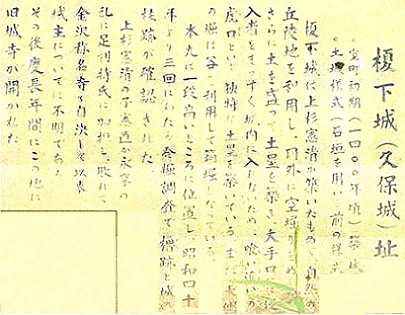 榎下城(久保城)址
○室町初期(一四〇〇年頃)築城
○土塁様式(石垣を用い 前の様式
榎下城は上杉憲清が築いたもの 自然の
丘陵地を利用し 外に空堀 め
さらに土を盛って土塁を築き大手口に
入者をまっすぐ城内に入れないため、喰い違いの
虎口という独特な土塁を築いている また大堀
の堀は谷 利用して 堀になっている
本丸に一段高いところに位置し、昭和四十
年より三回にわたる発掘調査で櫓跡と城
段跡が確認された
上杉憲清の子憲直が永享の
乱に足利持氏に加担し、敗れて
金沢称名寺で自決して以来
城主については不明である
その後慶長年間にこの地に
旧城寺が開かれた